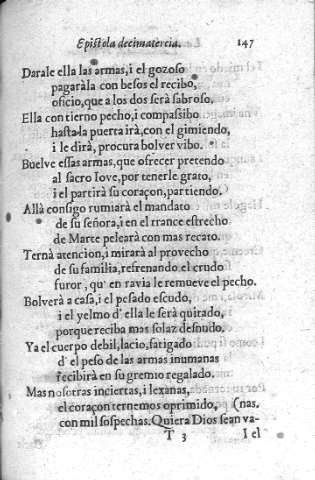 Epistola decimatercia. 147
Darale ella las armas, i el gozoso
pagaràla con besos el recibo,
oficio, que a los dos serà sabroso.
Ella con tierno pecho, i compassibo
hasta la puerta irà, con el gimiendo,
i le dirà, procura bolver vibo.
Buelve essas armas, que ofrecer pretendo
al sacro Iove, por tenerle grato,
i el partirà su coraçon, partiendo.
Allà consigo rumiarà el mandato
de su señora, i en el trance estrecho
de Marte pelearà con mas recato.
Ternà atencion, i mirarà al provecho
de su familia, refrenando el crudo
furor, qu' en ravia le remueve el pecho.
Bolverà a casa, i el pesado escudo,
i el yelmo d' ella le serà quitado,
porque reciba mas solaz desnudo.
Ya el cuerpo debil, lacio, fatigado
d' el peso de las armas inumanas
recibirà en su gremio regalado.
Mas nosotras inciertas, i lexanas,
el coraçon ternemos oprimido, (nas.
con mil sospechas. Quiera Dios sean va-
T 3 I el